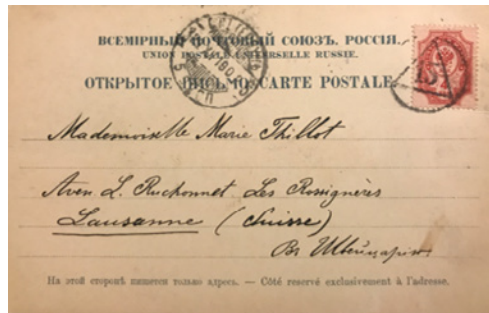 ВСЕМІРНЫЙ ПОЧТОВЫЙ СОЮЗЪ. РОССІЯ.
UNION POSTALE UNIVERSELLE RUSSIE.
ОТКРЫТОЕ ПИСЬМО CARTE POSTALE
Mademoiselle Marie Thillot
Aven. L. Ruchonnet Les Rossignères
Lausanne (Suisse)
Въ Швейцарію
На этой сторонѣ пишется только адресъ. — Côté reservé exclusivement à l'adresse.